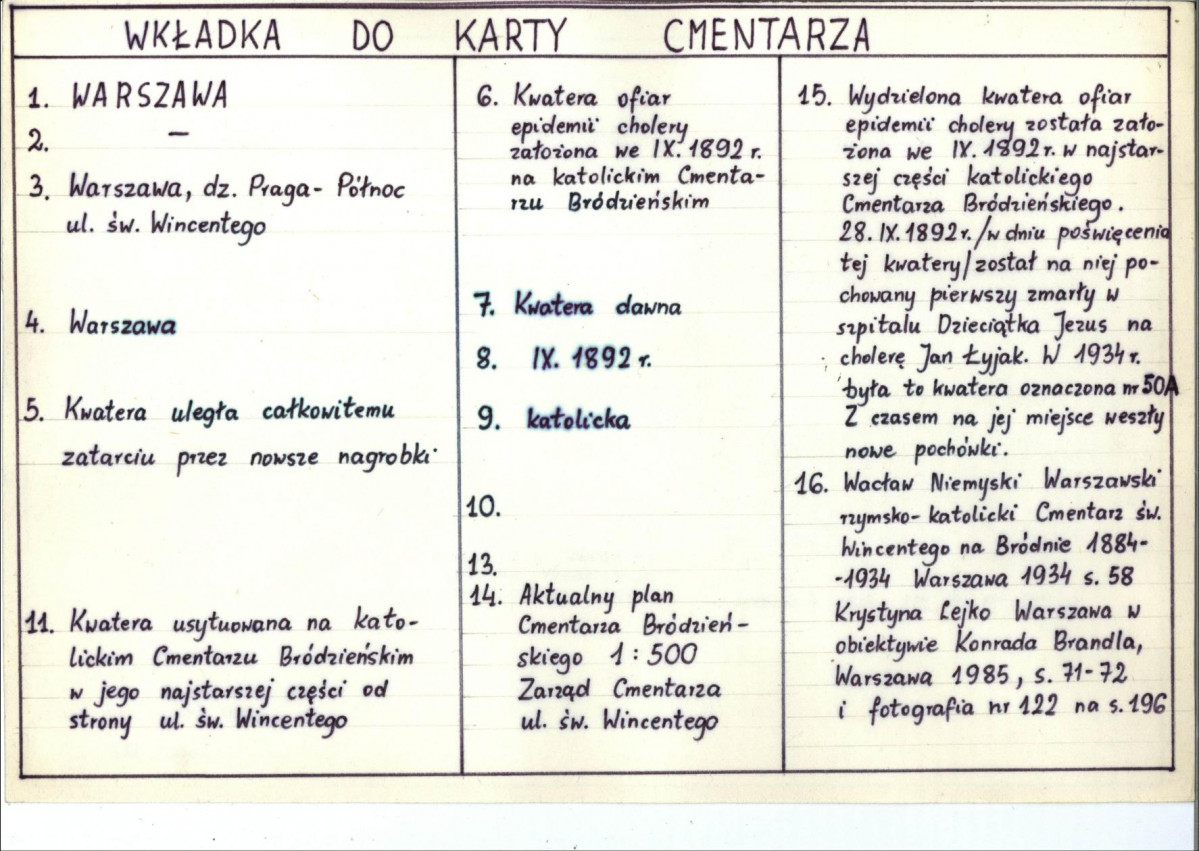 WKŁADKA DO KARTY CMENTARZA
1. WARSZAWA
2. –
3. Warszawa, dz. Praga- Północ
ul. św. Wincentego
4. Warszawa
5. Kwatera uległa całkowitemu
zatarciu przez nowsze nagrobki
11. Kwatera usytuowana na kato-
lickim Cmentarzu Bródzieńskim
w jego najstarszej części od
strony ul. św. Wincentego
6. Kwatera ofiar
epidemii cholery
założona we IX. 1892 r.
na katolickim Cmenta-
rzu Bródzieńskim
7. Kwatera dawna
8. IX. 1892 r.
9. katolicka
10.
13.
14. Aktualny plan
Cmentarza Bródzień-
skiego 1 : 500
Zarząd Cmentarza
ul. św. Wincentego
15. Wydzielona kwatera ofiar
epidemii cholery została zało-
żona we IX. 1892 r. w najstar-
szej części katolickiego
Cmentarza Bródzieńskiego.
28. IX. 1892 r. /w dniu poświęcenia
tej kwatery/ został na niej po-
chowany pierwszy zmarły w
szpitalu Dzieciątka Jezus na
cholerę Jan Łyjak. W 1934 r.
była to kwatera oznaczona nr 50A
Z czasem na jej miejsce weszły
nowe pochówki.
16. Wacław Niemyski Warszawski
rzymsko-katolicki Cmentarz św.
Wincentego na Bródnie 1884-
-1934 Warszawa 1934 s. 58
Krystyna Lejko Warszawa w
obiektywie Konrada Brandla,
Warszawa 1985, s. 71-72
i fotografia nr 122 na s. 196